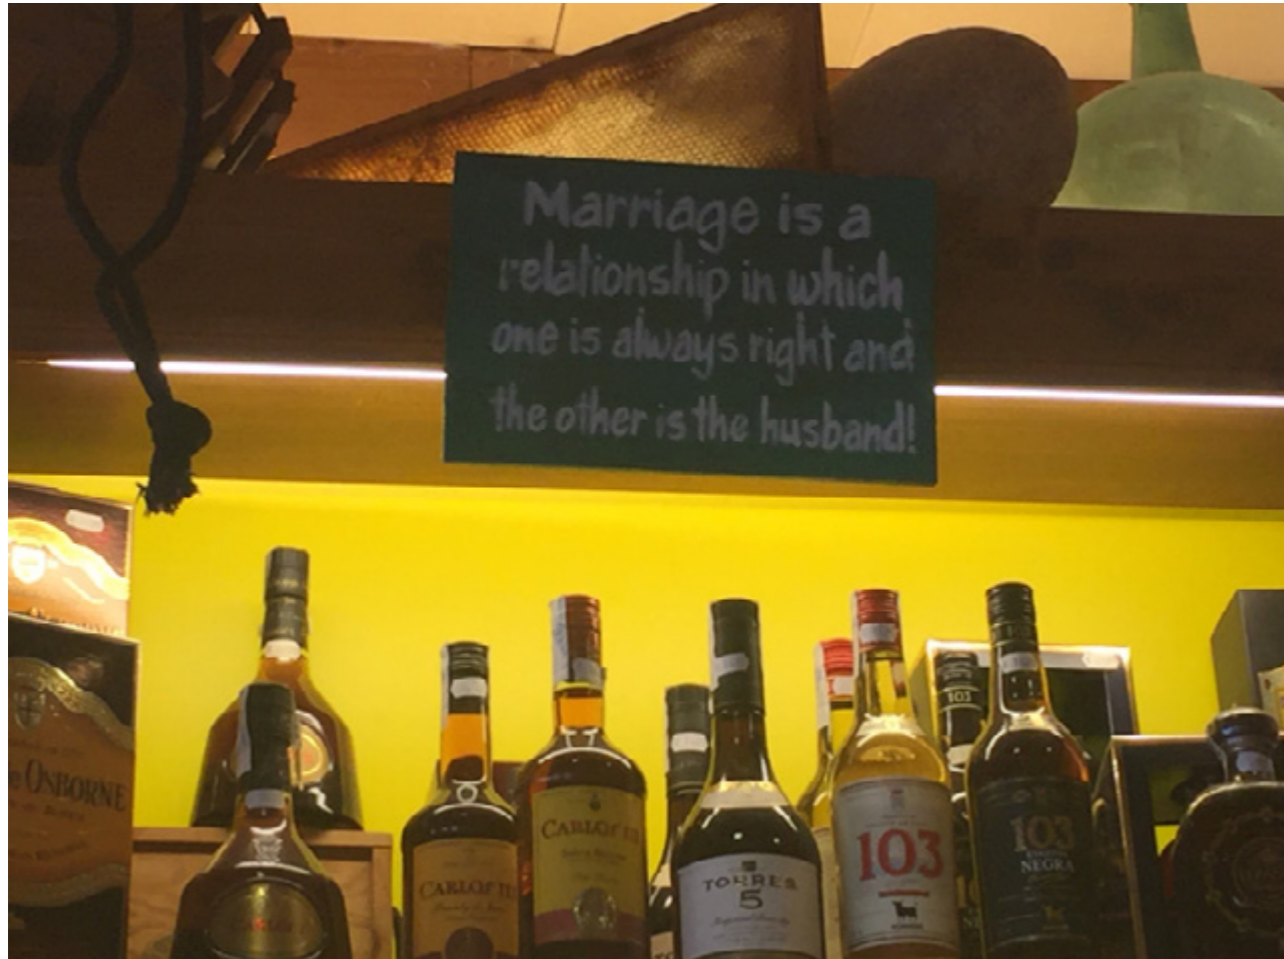 Marriage is a
relationship in which
one is always right and
the other is the husband!
OSBORNE
CARLOS III
CARLOS III
TORRES
5
103
103
103
NEGRA